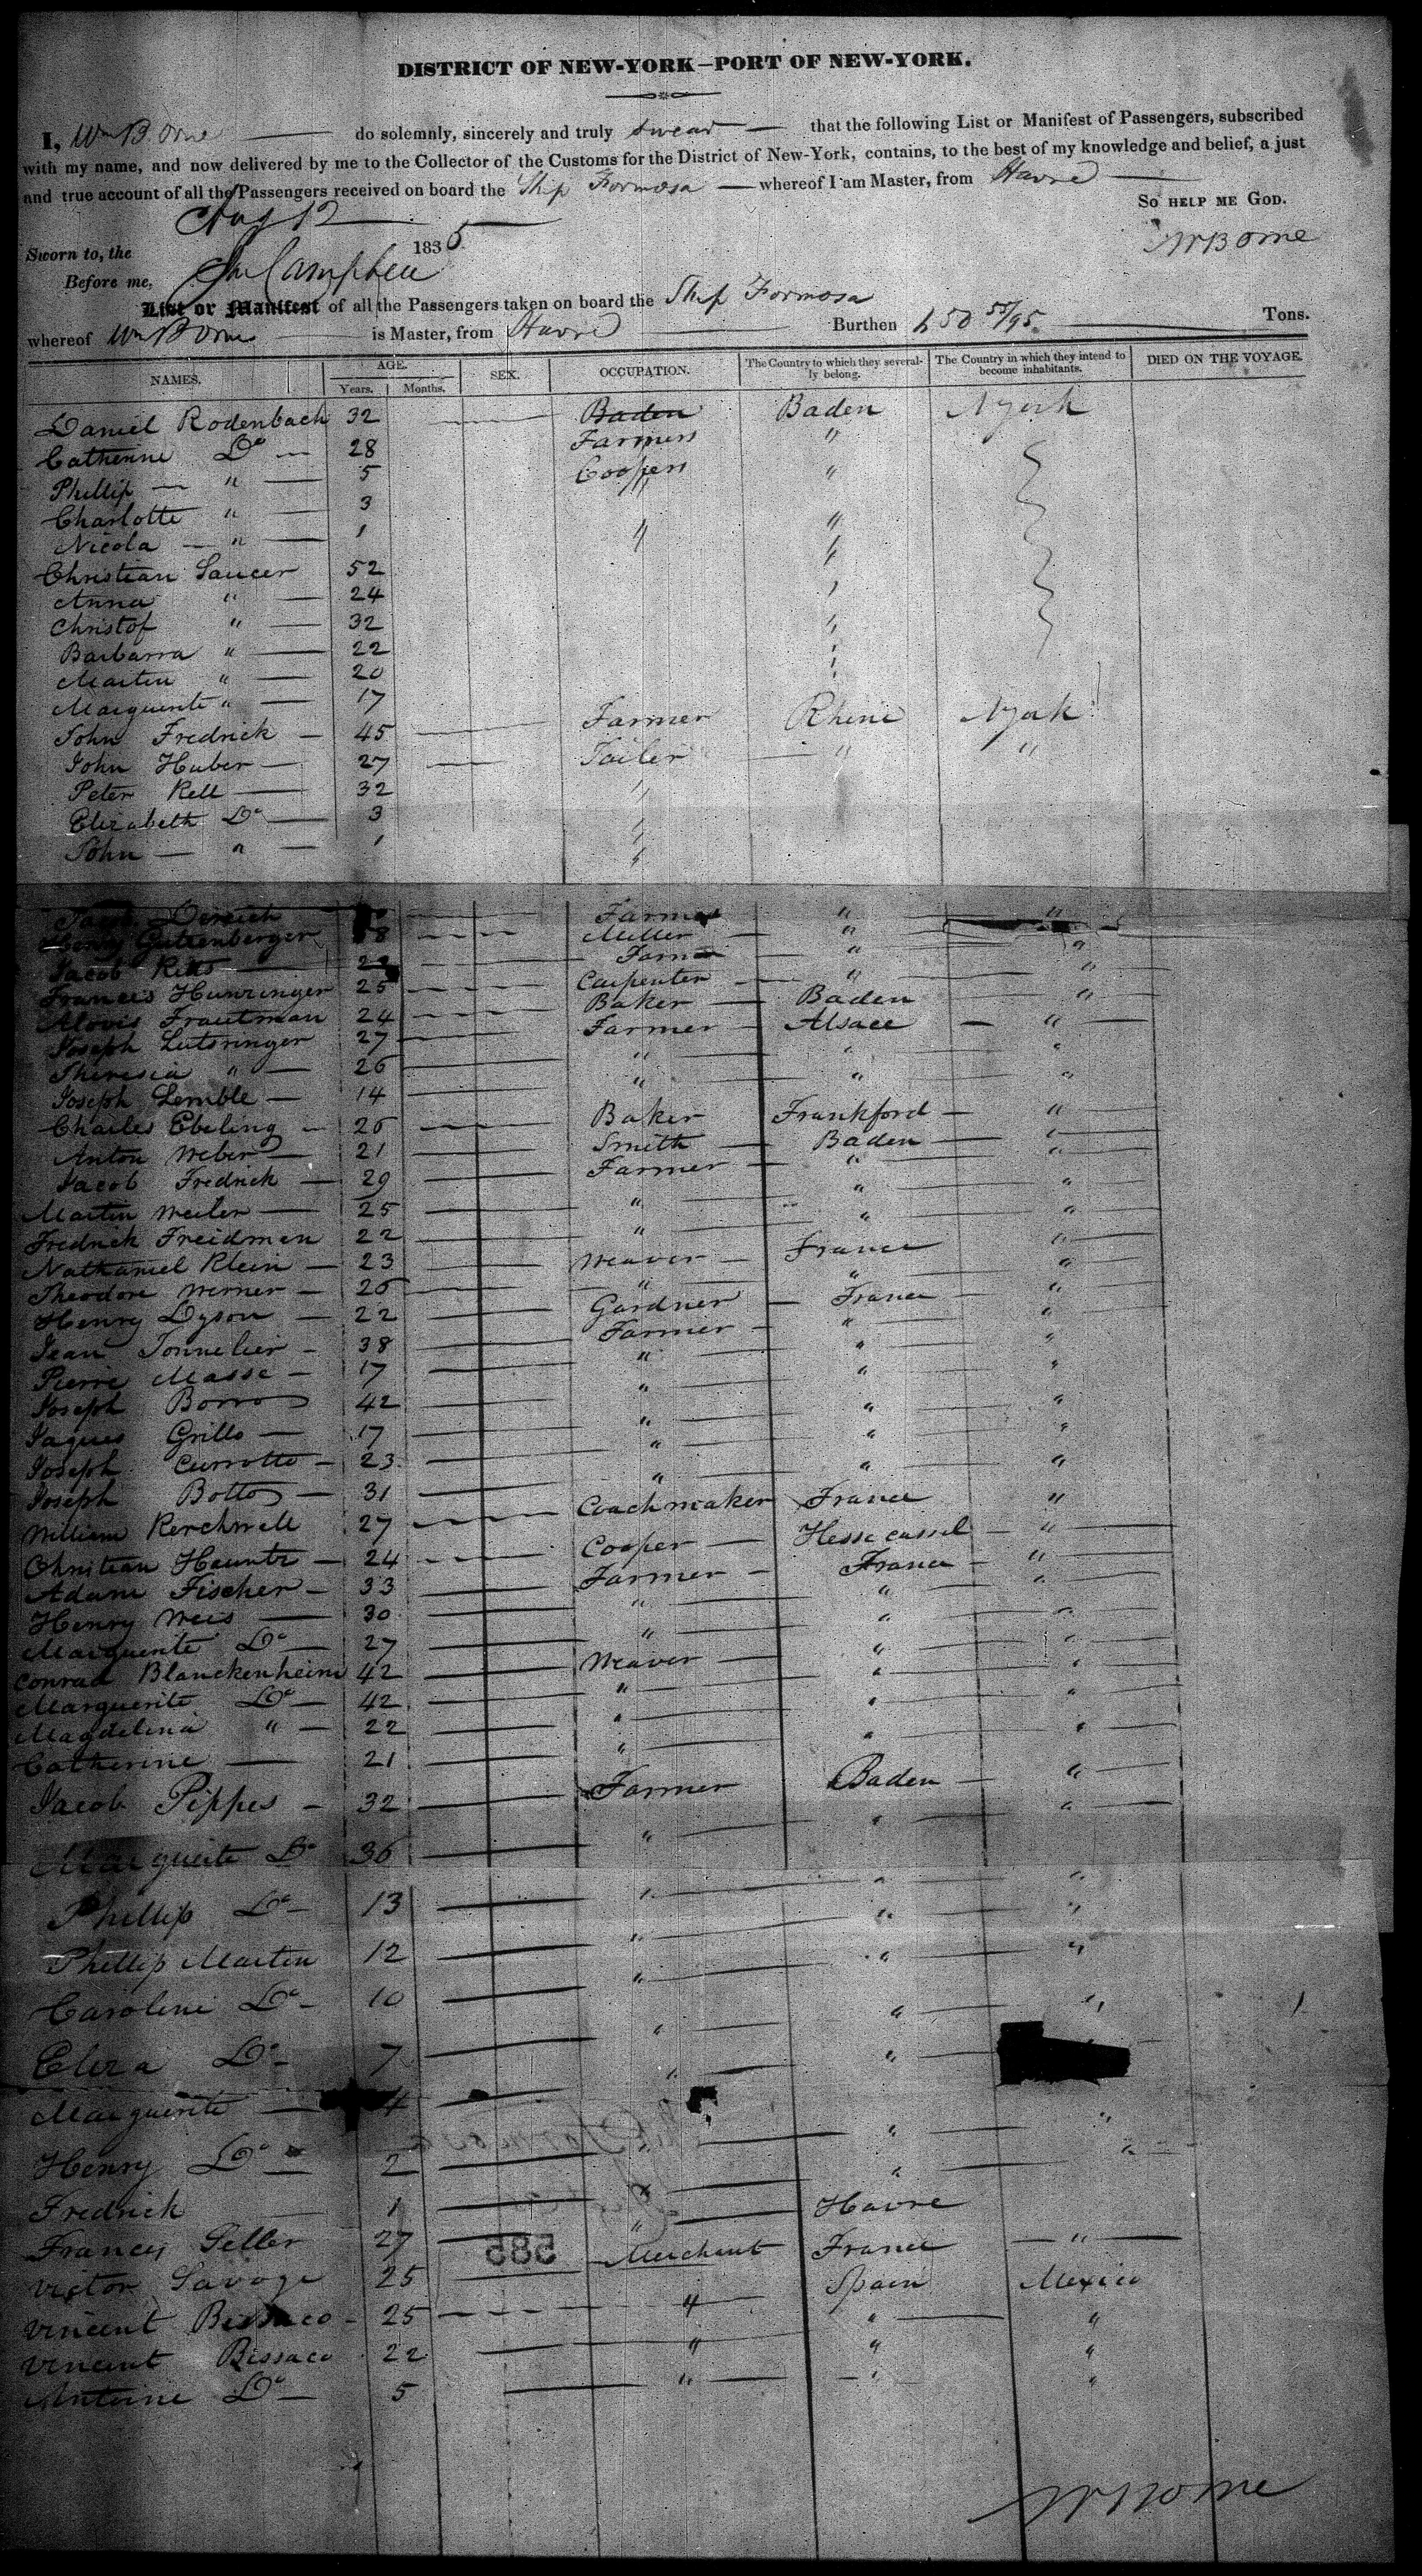 DISTRICT OF NEW-YORK—PORT OF NEW-YORK.
I, Wm B. Orne do solemnly, sincerely and truly swear that the following List or Manifest of Passengers, subscribed
with my name, and now delivered by me to the Collector of the Customs for the District of New-York, contains, to the best of my knowledge and belief, a just
and true account of all the Passengers received on board the Ship Formosa whereof I am Master, from Havre
So HELP ME GOD.
Sworn to, the Aug 12 1835
WB Orne
Before me, Campbell
List or Manifest of all the Passengers taken on board the Ship Formosa
whereof Wm B Orne is Master, from Havre Burthen 450 55/95 Tons.
NAMES. AGE. Years. Months. SEX. OCCUPATION. The Country to which they severally belong. The Country in which they intend to become inhabitants. DIED ON THE VOYAGE.
Daniel Rodenbach 32 Baden Baden NYork
Catherine Do 28 Farmers "
Phillip " 5 Coopers "
Charlotte " 3 "
Nicola " 1 " "
Christian Saucer 52
Anna " 24
Christof " 32
Barbarra " 22
Martin " 20
Marguerite " 17
John Fredrick 45 Farmer Rhine NYork
John Huber 27 Tailer " "
Peter Kell 32 "
Elizabeth Do 3 "
John " 1 "
Farmer " "
Henry Guttenberger Miller " "
Jacob " "
Frances Hunzinger 25 Carpenter " "
Alovis Trautman 24 Baker Baden "
Joseph Lutsringer 27 Farmer Alsace "
Theresia " 26 " " "
Joseph Lemble 14 " " "
Charles Ebeling 26 Baker Frankford "
Anton Weber 21 Smith Baden "
Jacob Fredrick 29 Farmer " "
Martin Weiler 25 " " "
Fredrick Freidman 22 " " "
Nathaniel Klein 23 Weaver France "
Theodore Werner 26 " " "
Henry Dyson 22 Gardner France "
Jean Tonnelier 38 Farmer " "
Pierre Masse 17 " " "
Joseph Borro 42 " " "
Jaques Grillo 17 " " "
Joseph Currotto 23 " " "
Joseph Botto 31 " " "
William Kerchwell 27 Coachmaker France "
Christian Hauntz 24 Cooper Hesse cassel "
Adam Fischer 33 Farmer France "
Henry Weis 30 " " "
Marguerite Do 27 " " "
Conrad Blanckenheim 42 Weaver " "
Marguerite Do 42 " " "
Magdelina " 22 " " "
Catherine 21 " " "
Jacob Pippes 32 Farmer Baden "
Marguerite Do 36 " " "
Phillip Do 13 " " "
Phillip Martin 12 " " "
Caroline Do 10 " " "
Eliza Do 7 " "
Marguerite 4 " "
Henry Do 2 " "
Fredrick 1 " "
Francis Seller 27 " Havre
585
Victor Savage 25 Merchant France "
Vincent Bissaco 25 " Spain Mexico
Vincent Bissaco 22 " " "
Antoine Do 5 " " "
WB Orne